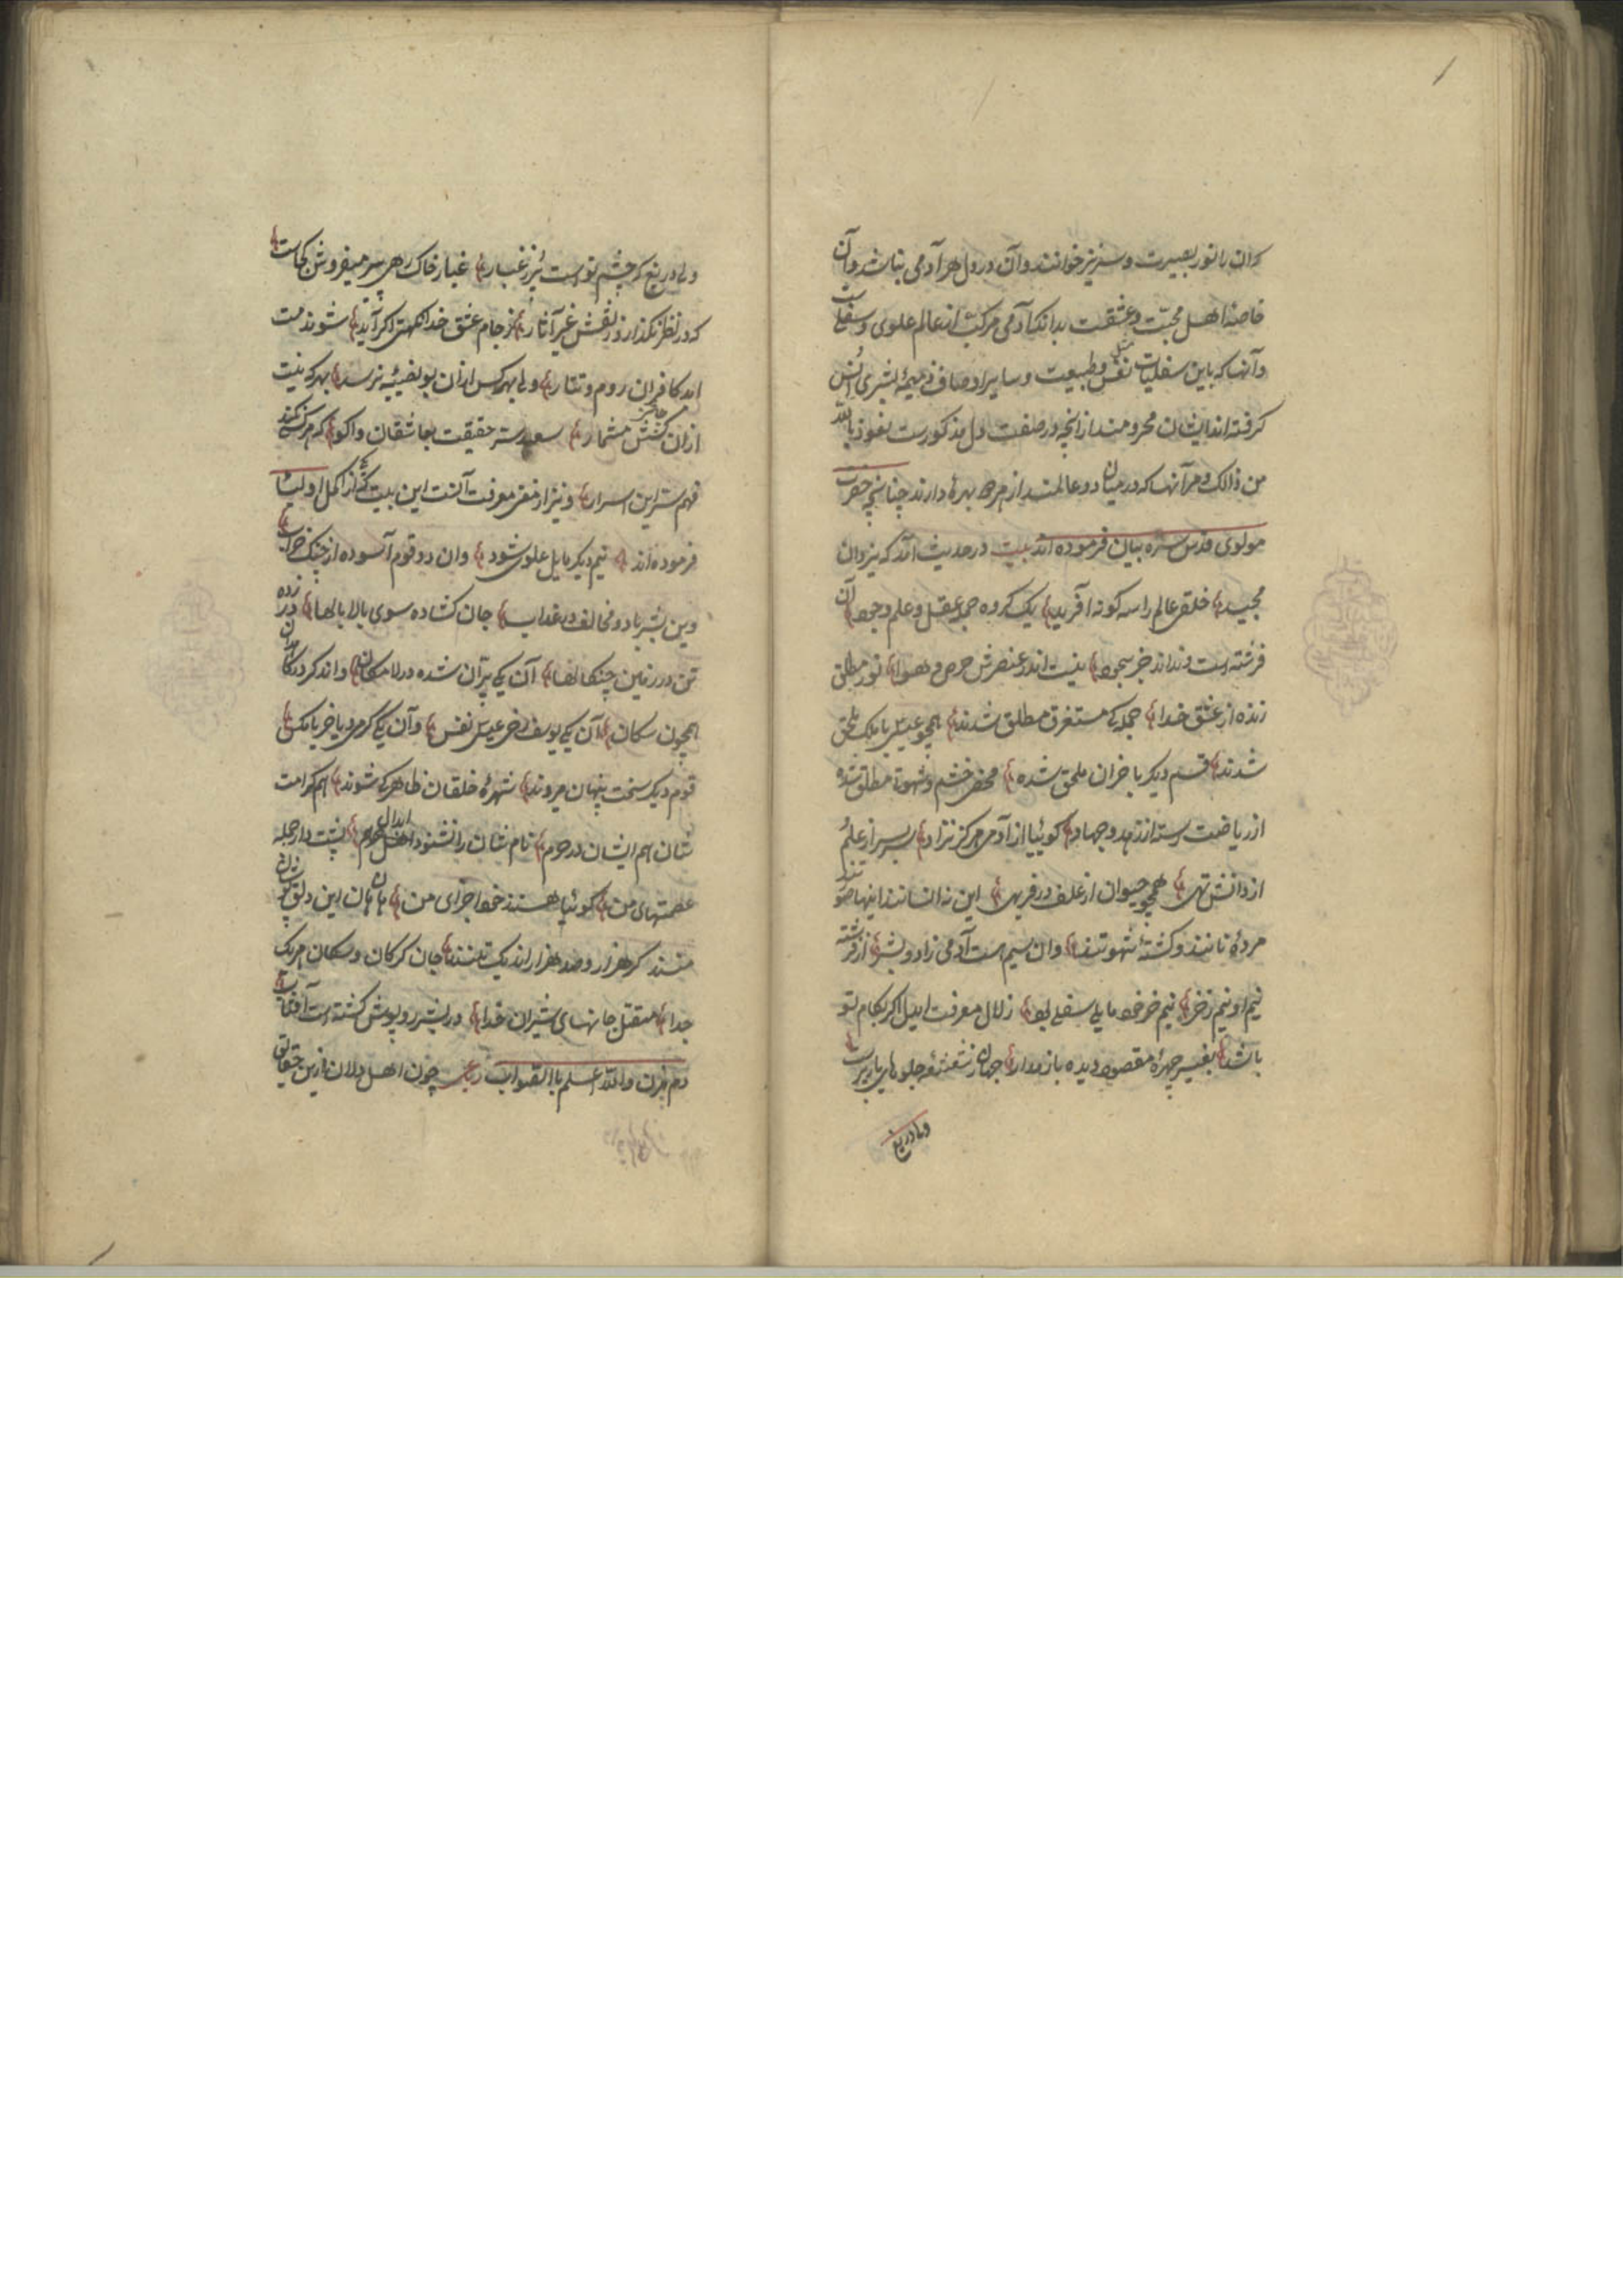 که ان را نور بصیرت و سر نیز خوانند و آن در دل هر آدمی نباشد و آن
خاصه اهل محبّت و عشقت بدانکه آدمی مرکّب از عالم علوی و سفلیست
و آنها که باین سفلیات مثل نفس و طبیعت و سایر اوصاف ذمیمهٔ بشری اُنس
کرفته اند ایشان محرومند از آنچه در صفت دل مذکورست نعوذ بالله
من ذالک و مر آنها که در میان دو عالمند از هر دو بهرهٔ دارند چنانچه حضرت
مولوی قدس سره بیان فرموده اند بیت در حدیث آمد که یزدان
مجید خلق عالم را سه کونه آفرید یک کروه جمله عقل و علم و جود آن
فرشته است و نداند جز سجود نیست اندر عنصرش حرص و هوا نور مطلق
زنده از عشق خدا جمله کی مستغرق مطلق شدند همچو عیسی با ملک ملحق
شدند قسم دیکر با خران ملحق شده محض خشم و شهوت مطلق شده
از ریاضت رسته از زهد و جهاد کوئیا از آدمی هرکز نزاد سربسر از علم
از دانش تهی همچو حیوان از علف در فربهی این نه انسانند اینها صورتند
مردهٔ نانند و کشتهٔ شهوتند وان سیم هست آدمی زاد و بشر از فرشته
نیم او نیم ز خر نیم خر خود مایل سفلی بود زلال معرفت ایدل اکر بکام تو
باشد بغیر چهرهٔ مقصود دیده باز مدار جهان ز شعشعهٔ جلوهای یار پرست
ولی دریغ
ولی دریغ که چشم تو است پُر ز غبار غبار خاک رهی سر میفروش کجاست
که در نظر نکذارد ز نقش غیر آثار ز جام عشق خدا اکر آید شوند مست
ابد کافران روم و تتار ولی بهر کس ازان بو نصیبئه نرسد بهر که نیست
ازان کشش مشمار سعید سرّ حقیقت بعاشقان واکو که هر کسی نکند
فهم سرّ این اسرار و نیز از معرفت آنست این بیت که از اکمل اولیا
فرموده اند نیم دیکر مایل علوی شود وان دو قوم آسوده از جنک و خراب
وین بشر با دو مخالف در عذاب جان کشاده سوی بالا بالها در زده
تن در زمین چنکالها آن یکی پرّان شده در لامکان واندکر در کاهدان
همچون سکان آن یکی یوسف رخی عیسی نفس وان یکی کرکی و یا خر با
قوم دیکر سخت پنهان میروند شهرهٔ خلقان ظاهر کی شوند هم کرامت
شان هم ایشان در حرم نام شان را نشنود ابدال هم پشت دار جمله
عصمتهای من کوئیا هستند خود اجزای من هان و هان این دلق پوشان
منند کر هزار و صد هزار اند یک تنند جان کرکان و سکان هر یک
جدا متّصل جانهای شیران خدا در بشر روپوش کشته است آفتاب
دم مزن والله اعلم باالصّواب رباعی چون اهل دلان ازین حقایق